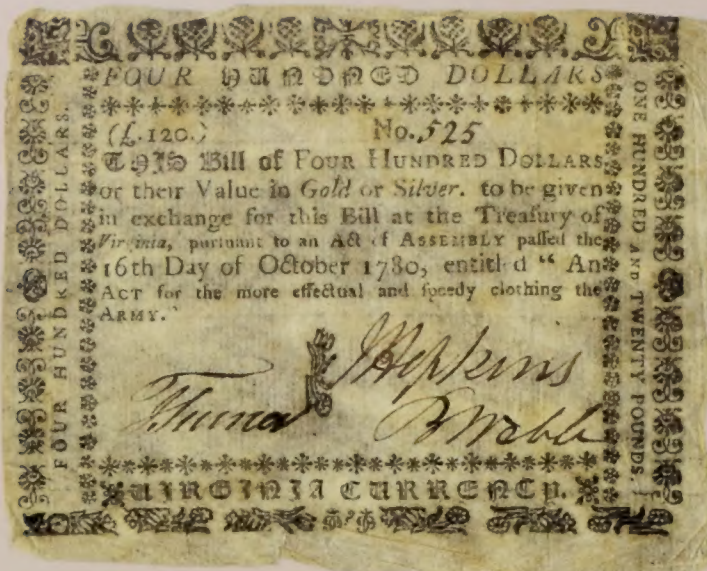 FOUR HUNDRED DOLLARS
(£.120.) No. 525
THIS Bill of FOUR HUNDRED DOLLARS
or their Value in Gold or Silver. to be given
in exchange for this Bill at the Treaſury of
Virginia, purſuant to an Act of ASSEMBLY paſſed the
16th Day of October 1780, entitled “ An
ACT for the more effectual and ſpeedy clothing the
ARMY.”
J Hopkins
B Webb
VIRGINIA CURRENCY.
FOUR HUNDRED DOLLARS.
ONE HUNDRED AND TWENTY POUNDS.